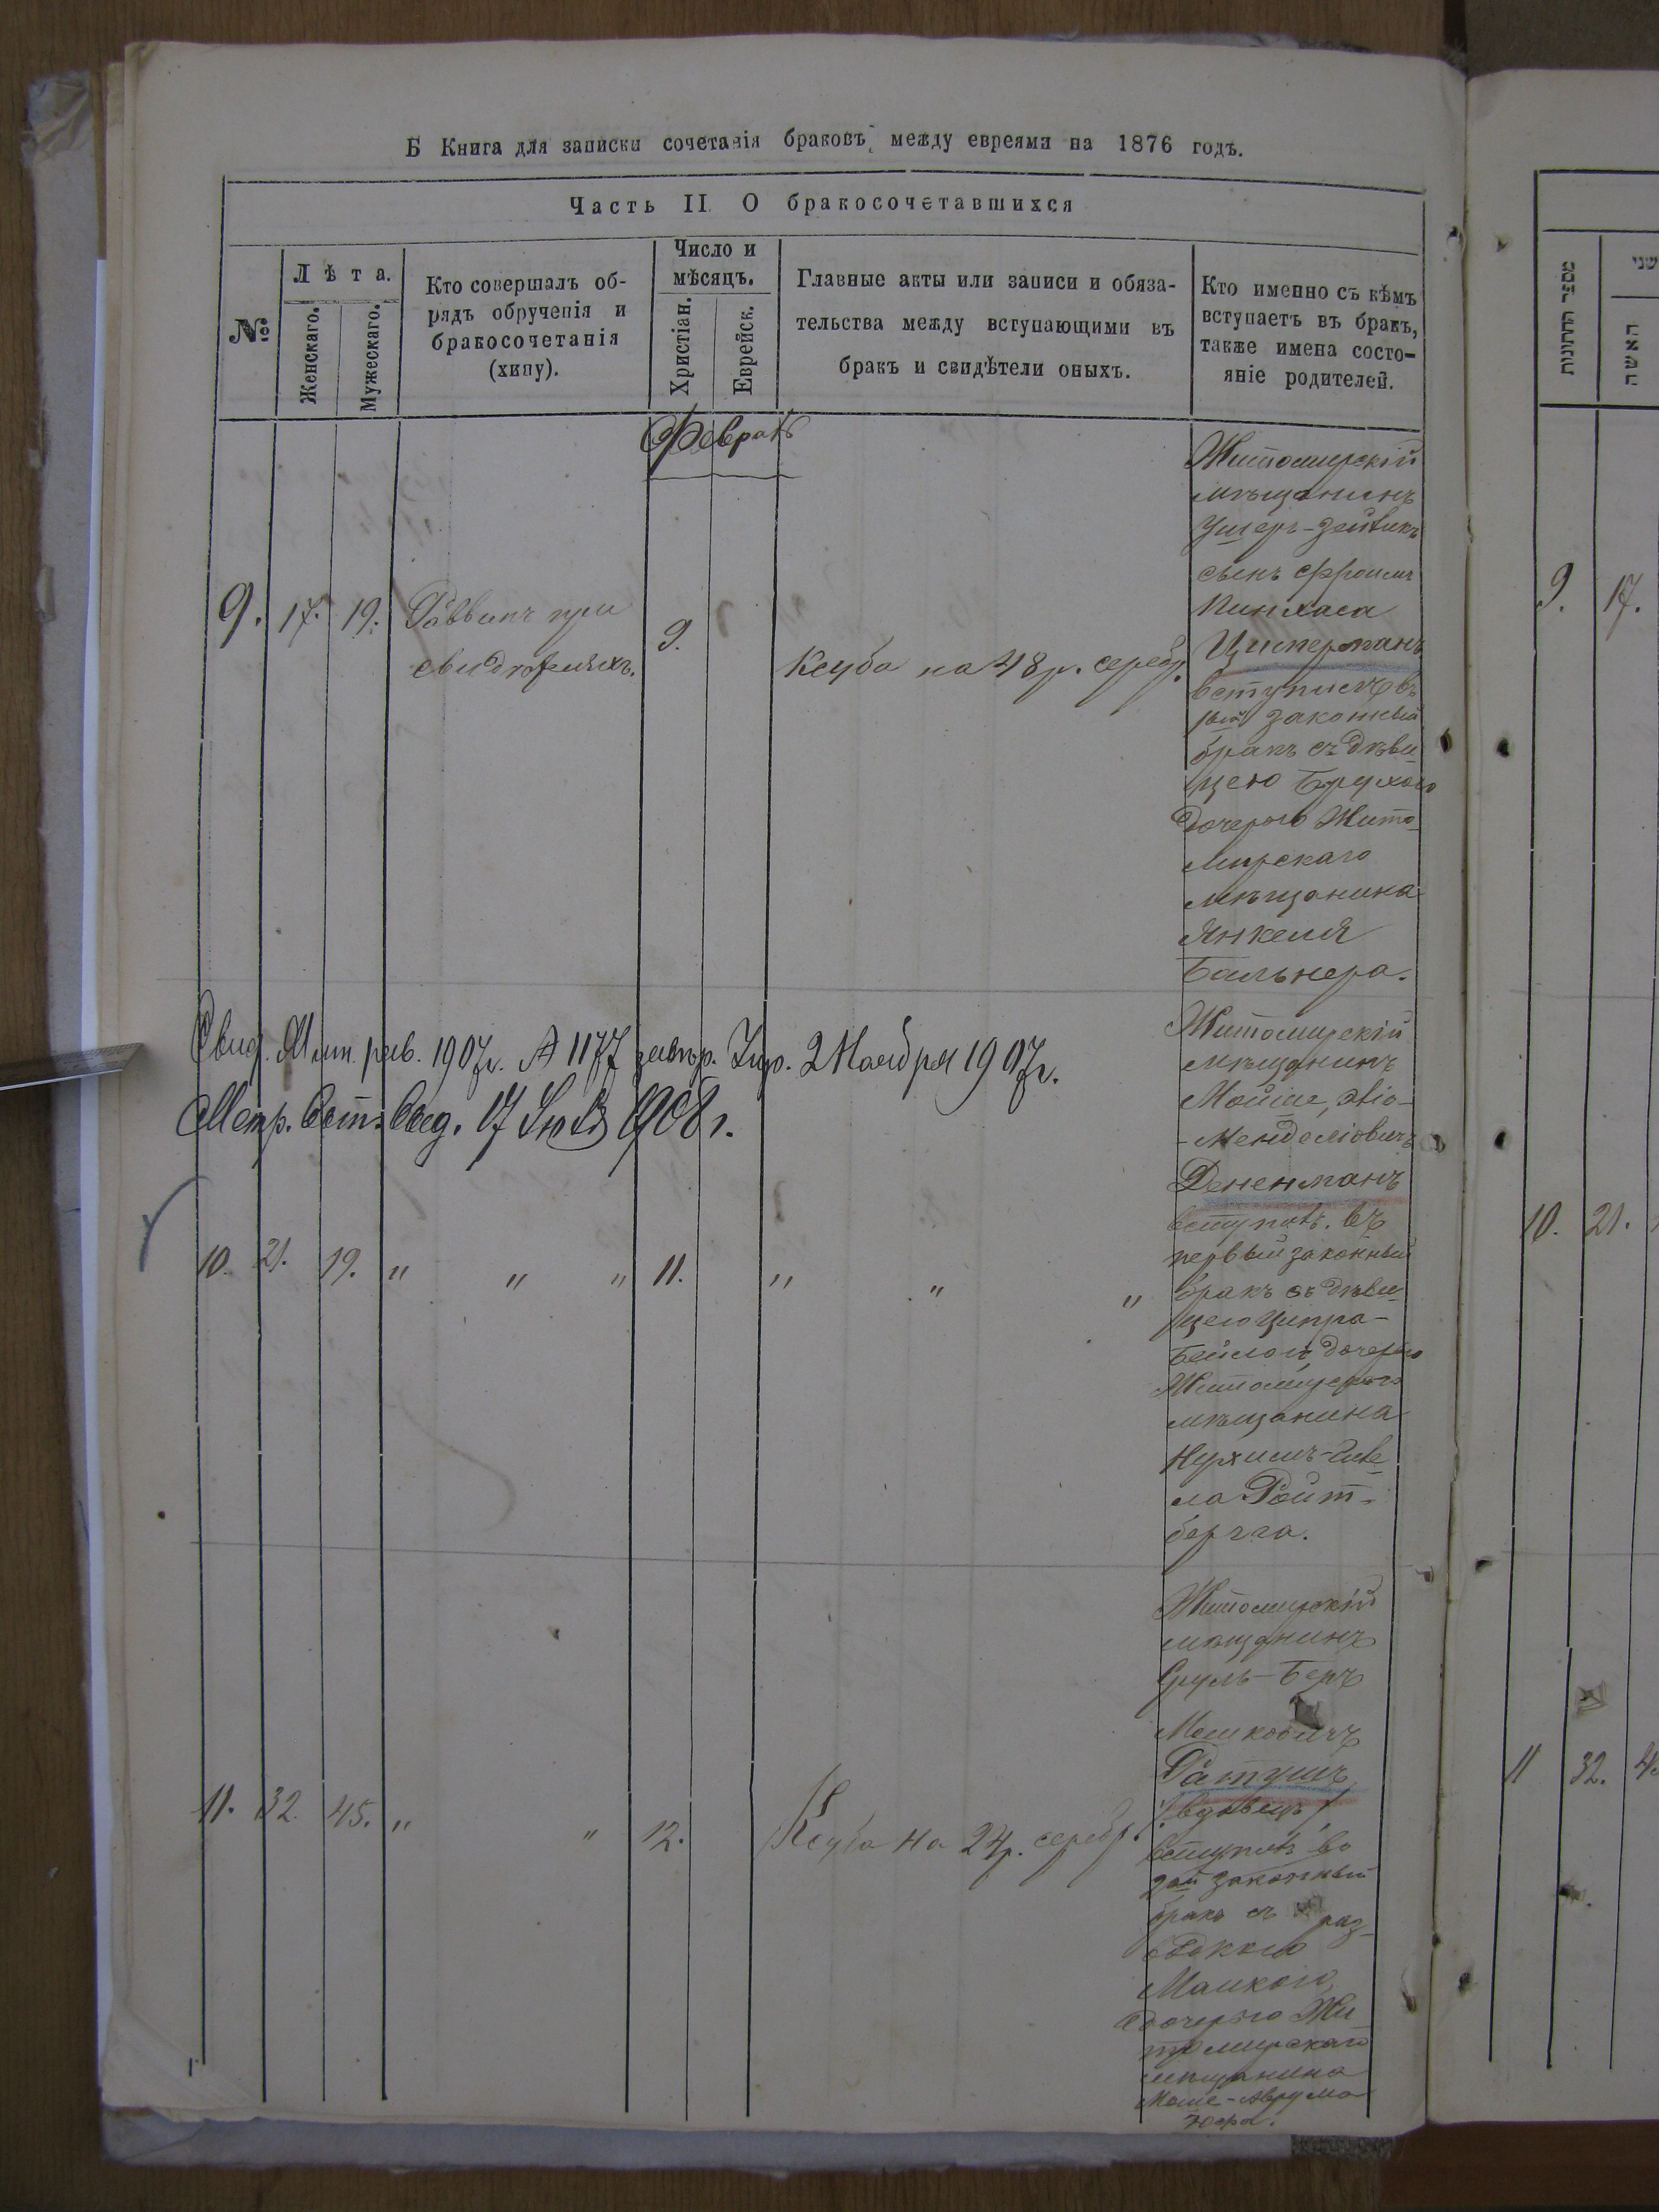 Б Книга для записки сочетанія браковъ между евреями на 1876 годъ.
Часть II. О бракосочетавшихся
№
Лѣта.
Женскаго.
Мужескаго.
Кто совершалъ об-
рядъ обрученія и
бракосочетанія
(хипу).
Число и
мѣсяцъ.
Христіан.
Еврейск.
Главные акты или записи и обяза-
тельства между вступающими въ
бракъ и свидѣтели оныхъ.
Кто именно съ кѣмъ
вступаетъ въ бракъ,
также имена состо-
яніе родителей.
Февраль
9. 17. 19.
Раввинъ при
свидѣтеляхъ.
9.
Ксуба на 48 р. серебр.
Житомирскій
мѣщанинъ
Ушеръ-Зейликъ
сынъ Фроимъ
Пинхаса
Циперманъ
вступилъ въ
1ый законный
бракъ съ дѣви
цею Брухою
дочерью Жито-
мирскаго
мѣщанина
Янкеля
Бальнера.
1907г. № 1177 2 Ноября 1907г.
17 1908 г.
10. 21. 19. " " " 11. " " "
Житомирскій
мѣщанинъ
Мойше,
-Менделіовичъ
Дененманъ
вступилъ въ
первый законный
бракъ съ дѣви
цею Ципра-
Бейлою дочерью
Житомирскаго
мѣщанина
Нухимъ-
ла Ройт-
берга.
11. 32. 45. " " 12.
Ксуба на 24р. серебр.
Житомирскій
мѣщанинъ
Сруль-Беръ
Мошковичъ
Ратушъ
/вдовецъ/
вступилъ во
2ой законный
бракъ съ раз-
водкою
Малкою,
дочерью Жи
томирскаго
мѣщанина
Моше-Аврума
מספר החתונות
שני
האשה
9. 17.
10. 21.
11 32.